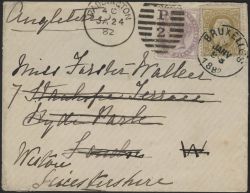 Angleterre
PADDINGTON
JA 24
82
P
2
BRUXELLES
JANV
Miss Forster Walker
7 Stanhope Terrace
Hyde Park
London W
Weston
Leicestershire